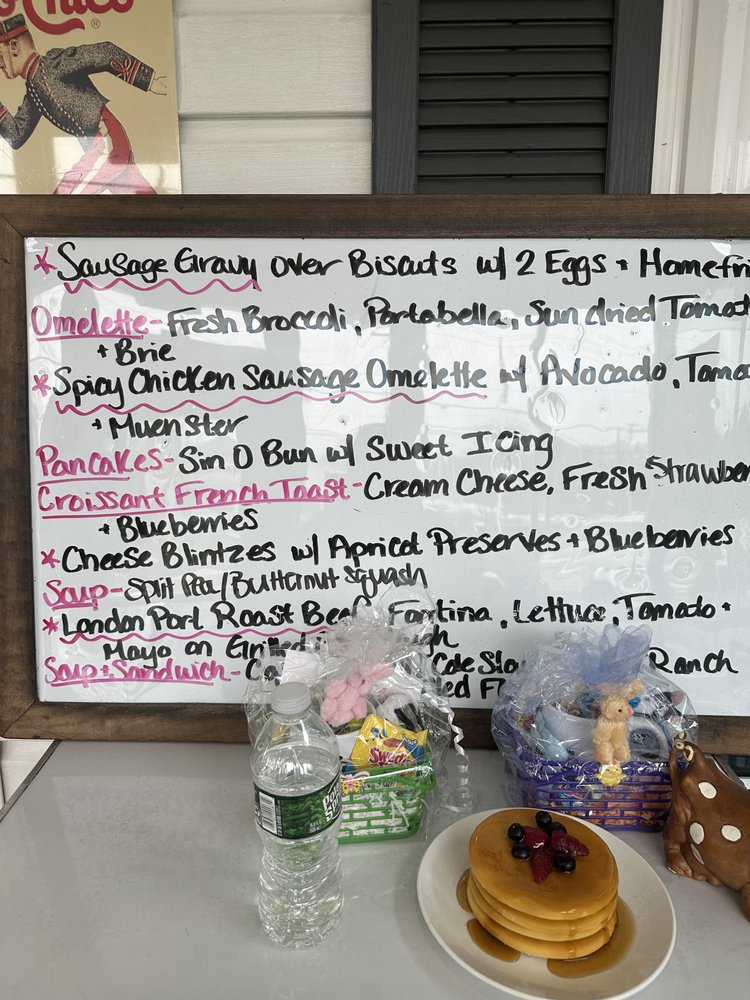 Chico ®
* Sausage Gravy over Biscuits w/ 2 Eggs + Homefri
Omelette - Fresh Broccoli, Portabella, Sun dried Tomat
+ Brie
* Spicy Chicken Sausage Omelette w/ Avocado, Toma
+ Muenster
Pancakes - Sin O Bun w/ Sweet Icing
Croissant French Toast - Cream Cheese, Fresh Strawber
+ Blueberries
* Cheese Blintzes w/ Apricot Preserves + Blueberries
Soup - Split Pea/Butternut Squash
* London Port Roast Beef, Fontina, Lettuce, Tomato +
Mayo on Grilled
Soup + Sandwich - Cole Slaw Ranch